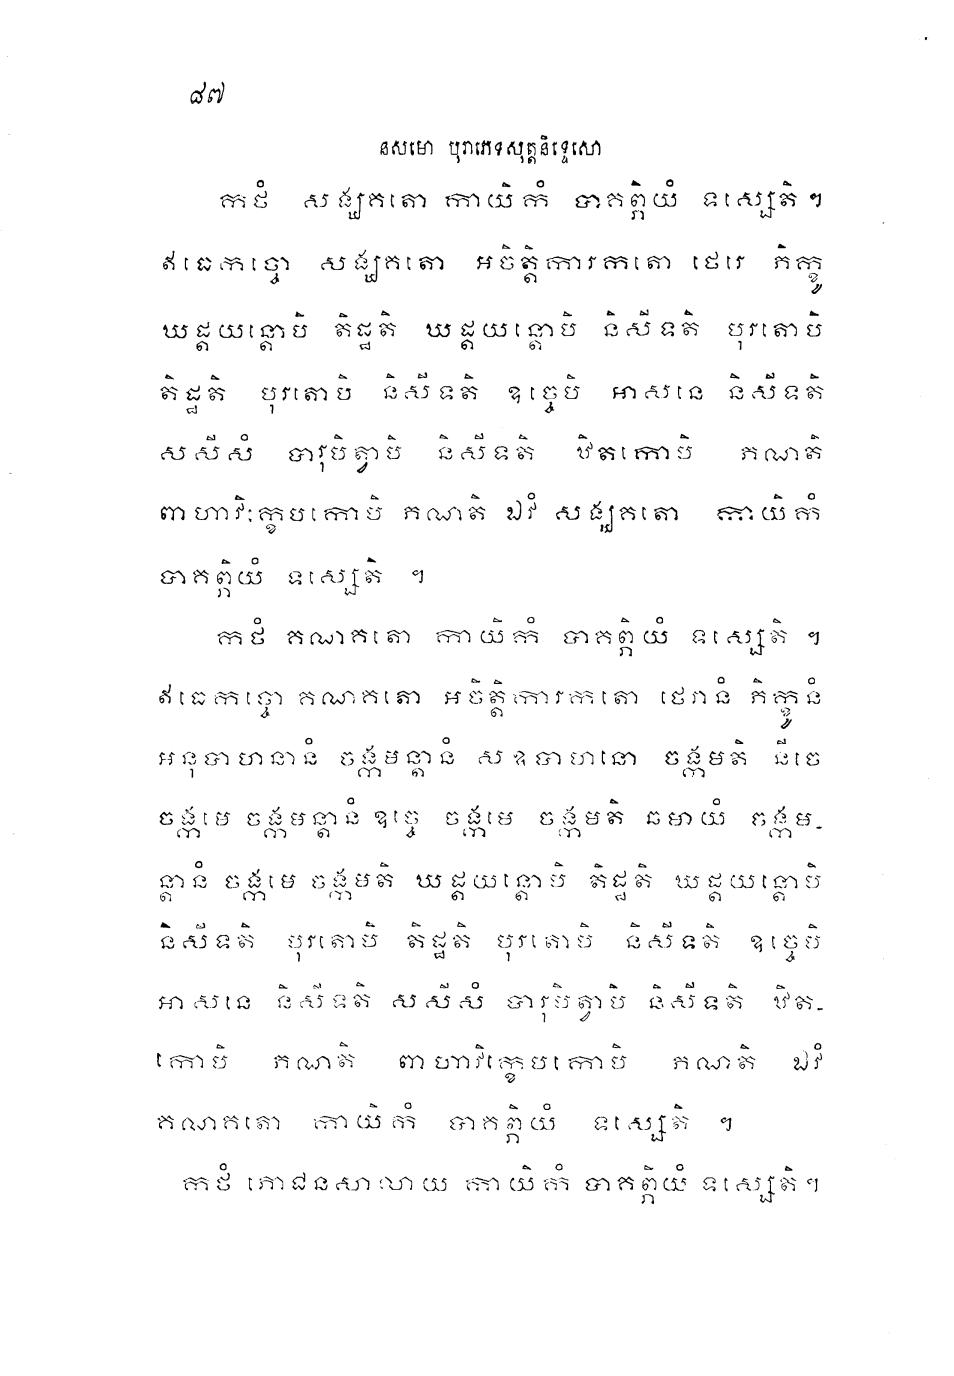 ៨៧
ទសមោ បុរាភេទសុត្តនិទ្ទេសោ
កថំ សង្ឃគតោ កាយិកំ បាគព្ភិយំ ទស្សេតិ ។
ឥធេកច្ចោ សង្ឃគតោ អចិត្តិការកតោ ថេរេ ភិក្ខូ
ឃដ្តយន្តោបិ តិដ្ឋតិ ឃដ្តយន្តោបិ និសីទតិ បុរតោបិ
តិដ្ឋតិ បុរតោបិ និសីទតិ ឧច្ចេបិ អាសនេ និសីទតិ
សសីសំ បារុបិត្វាបិ និសីទតិ ឋិតកោបិ ភណតិ
ពាហាវិក្ខេបកោបិ ភណតិ ឯវំ សង្ឃគតោ កាយិកំ
បាគព្ភិយំ ទស្សេតិ ។
កថំ គណគតោ កាយិកំ បាគព្ភិយំ ទស្សេតិ ។
ឥធេកច្ចោ គណគតោ អចិត្តិការកតោ ថេរានំ ភិក្ខូនំ
អនុបាហនានំ ចង្កមន្តានំ សឧបាហនោ ចង្កមតិ នីចេ
ចង្កមេ ចង្កមន្តានំ ឧច្ចេ ចង្កមេ ចង្កមតិ ឆមាយំ ចង្កម-
ន្តានំ ចង្កមេ ចង្កមតិ ឃដ្តយន្តោបិ តិដ្ឋតិ ឃដ្តយន្តោបិ
និសីទតិ បុរតោបិ តិដ្ឋតិ បុរតោបិ និសីទតិ ឧច្ចេបិ
អាសនេ និសីទតិ សសីសំ បារុបិត្វាបិ និសីទតិ ឋិត-
កោបិ ភណតិ ពាហាវិក្ខេបកោបិ ភណតិ ឯវំ
គណគតោ កាយិកំ បាគព្ភិយំ ទស្សេតិ ។
កថំ ភោជនសាលាយ កាយិកំ បាគព្ភិយំ ទស្សេតិ ។